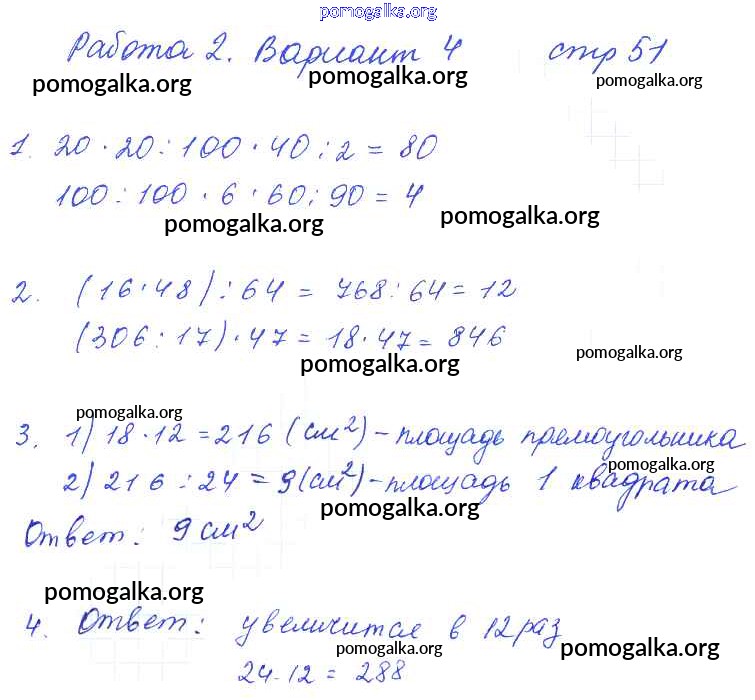 pomogalka.org
Работа 2. Вариант 4 стр 51
pomogalka.org pomogalka.org pomogalka.org
1. 20 · 20 : 100 · 40 : 2 = 80
100 : 100 · 6 · 60 : 90 = 4
pomogalka.org pomogalka.org
2. (16 · 48) : 64 = 768 : 64 = 12
(306 : 17) · 47 = 18 · 47 = 846
pomogalka.org pomogalka.org
pomogalka.org
3. 1) 18 · 12 = 216 (см²) – площадь прямоугольника
pomogalka.org
2) 216 : 24 = 9 (см²) – площадь 1 квадрата
pomogalka.org
Ответ: 9 см²
pomogalka.org
4. Ответ: увеличится в 12 раз
pomogalka.org pomogalka.org
24 · 12 = 288